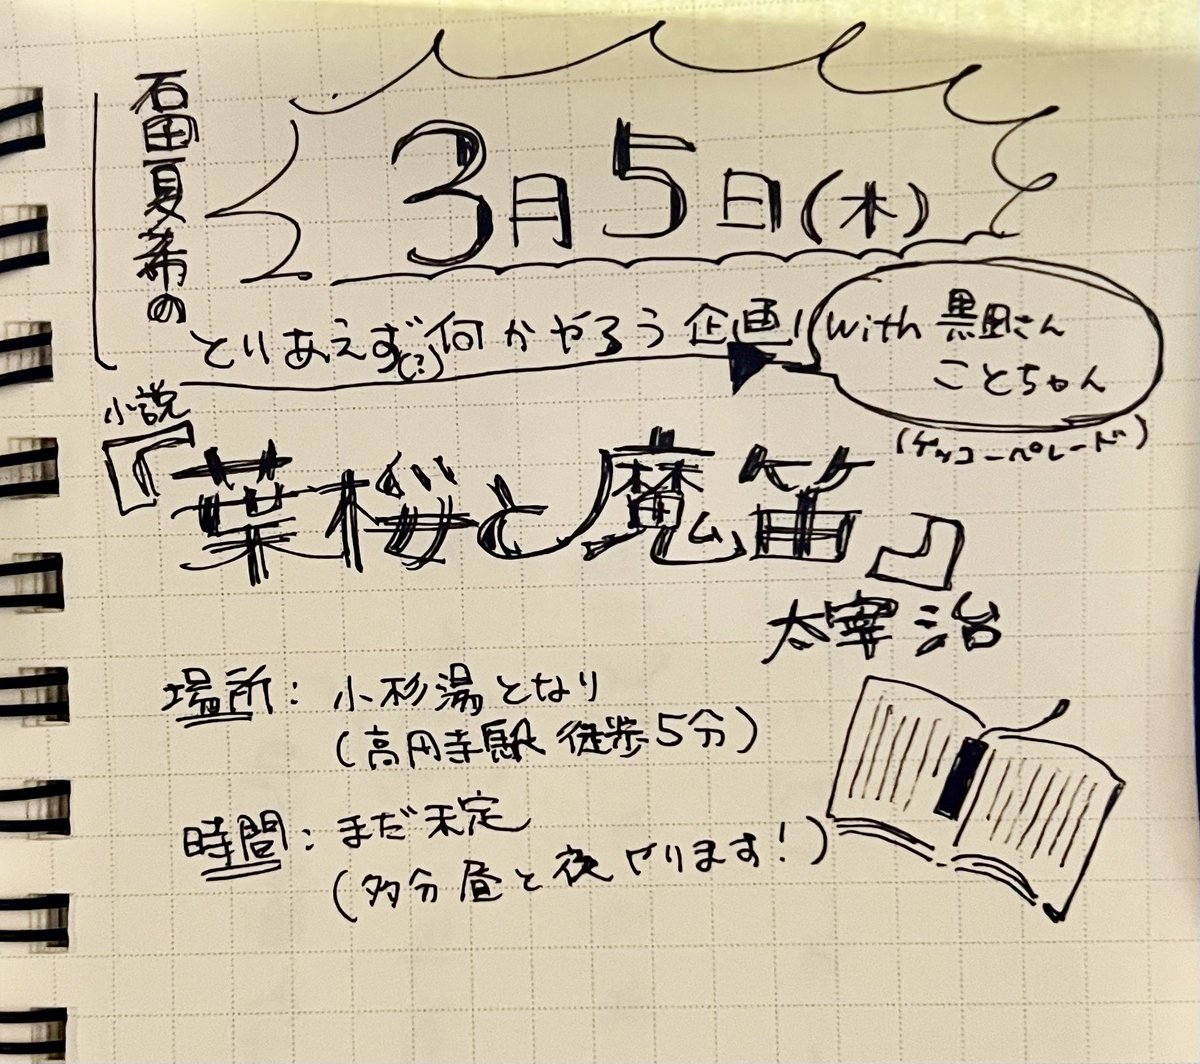 石田夏希の
3月5日(木)
とりあえず(?)何かやろう企画!
with 黒田さん
ことちゃん
(ゲッコーパレード)
小説
『葉桜と魔笛』
太宰治
場所: 小杉湯となり
(高円寺駅 徒歩5分)
時間: まだ未定
(多分昼と夜やります!)